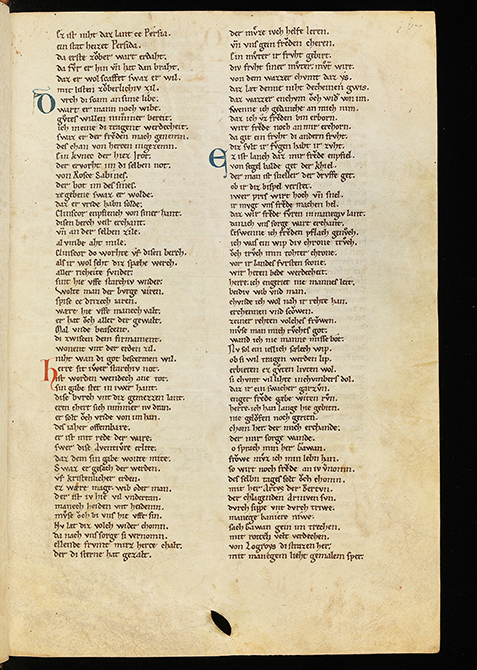 Ez ist niht daz lant ce Persia.
ein stat heizet Persida.
da erste zover wart erdaht.
da fvr er hin vn hat dan braht.
daz er wol scaffet swaz er wil.
mit listen zoberlichiv zil.
Dvrch di scam an sime libe.
wart er mann noch wibe.
gvtes willen nimmer bereit.
ich meine di tragent werdecheit.
swaz er der frôden mach genemn.
des chan von herzen in gezemn.
Ein kvnec der hiez Jrot.
der ervorht im di selben not.
von Rosce Sabines.
der bot im des sines.
zegebene swaz er wolde.
daz er vride habn solde.
Clinscor enpfiench von siner hant.
disen berch vest erchant.
vn an der selben zile.
al vmbe aht mile.
Clinscor do worhte vf disen berch.
als ir wol seht diz spæhe werch.
aller richeite svnder.
sint hie vffe starchiv wnder.
Wolte man der bvrge varen.
spise ce drizech iaren.
wære hie vffe manecvalt.
er hat och aller der gewalt.
Mal vnde beascent.
di zwiscen dem firmament.
wonent vnt der erden zil.
niht wan di got bescermen wil.
Herre sit iwer starchiv not.
ist worden wendech ane tot.
sin gabe stet in iwer hant.
dise bvrch vnt diz gemezzen lant.
ern chert sich nimmer nv dran.
er solt och vride von im han.
des iaher offenbare.
er ist mit rede der ware.
swer dise Aventivre erlite.
daz dem sin gabe wonte mite.
Swaz er gesach der werden.
vf kristenlicher erden.
ez wære magt wib oder man.
der ist iv hie vil vndertan.
manech heiden vnt heidenin.
mvse och di vns hie vffe sin.
Nv lat daz volch wider chomn.
da nach vns sorge si vernomn.
ellende frvmt mirz herze chalt.
der di sterne hat gezalt.
der mvze iveh helfe leren.
vn vns gein frôden cheren.
Ein mvter ir frvht gebirt.
div frvht siner mvter mvter wirt.
von dem wazzer chvmt daz ys.
daz lat denne niht decheinen wis.
daz wazzer enchom och wider von im.
swenne ich gedanche an mich nim.
daz ich vz frôden bin erborn.
wirt frôde noch an mir erchorn.
da git ein frvht di andern frvht.
diz svlt ir fvgen habt ir zvht.
Ez ist lanch daz mir frôde enpfiel.
von segel balde get der chiel.
der man ist sneller der drvffe get.
ob ir diz bispel verstet.
iwer pris wirt hoch vn snel.
ir mvgt vns frôde machen hel.
daz wir frôde fvren in manegiv lant.
da nach vns sorge wart erchant.
Etswenne ich frôden pflach genvch.
ich was ein wip div chrone trvch.
och trvch min tohter chrone.
vor ir landes fvrsten scone.
wir heten bede werdecheit.
herre ich engeriet nie mannes leit.
beidiv wib vnd man.
chvnde ich wol nah ir rehte han.
erchennen vnd scowen.
zeiner rehten volches frowen.
mvse man mich rvchets got.
wand ich nie manne missebot.
Nv sol ein ieslich sælech wip.
ob si wil tragen werden lip.
erbieten ez gvten livten wol.
si chvmt vil lihte in chvmbers dol.
daz ir ein swacher garzvn.
enger frôde gæbe witen rvn.
herre ich han lange hie gebiten.
nie gelôfen noch geriten.
chom her der mich erchande.
der mir sorge wande.
o sprach min her Gawan.
frôwe mvz ich min leben han.
so wirt noch frôde an iv vernomn.
des selben tages solt och chomn.
mit her Artvs der Bertvn.
der chlagenden Arniven svn.
dvrch sippe vnt dvrch triwe.
manege baniere niwe.
sach Gawan gein im trechen.
mit rotten velt verdechen.
von Logroys di strazen her.
mit manegem lieht gemalem sper.